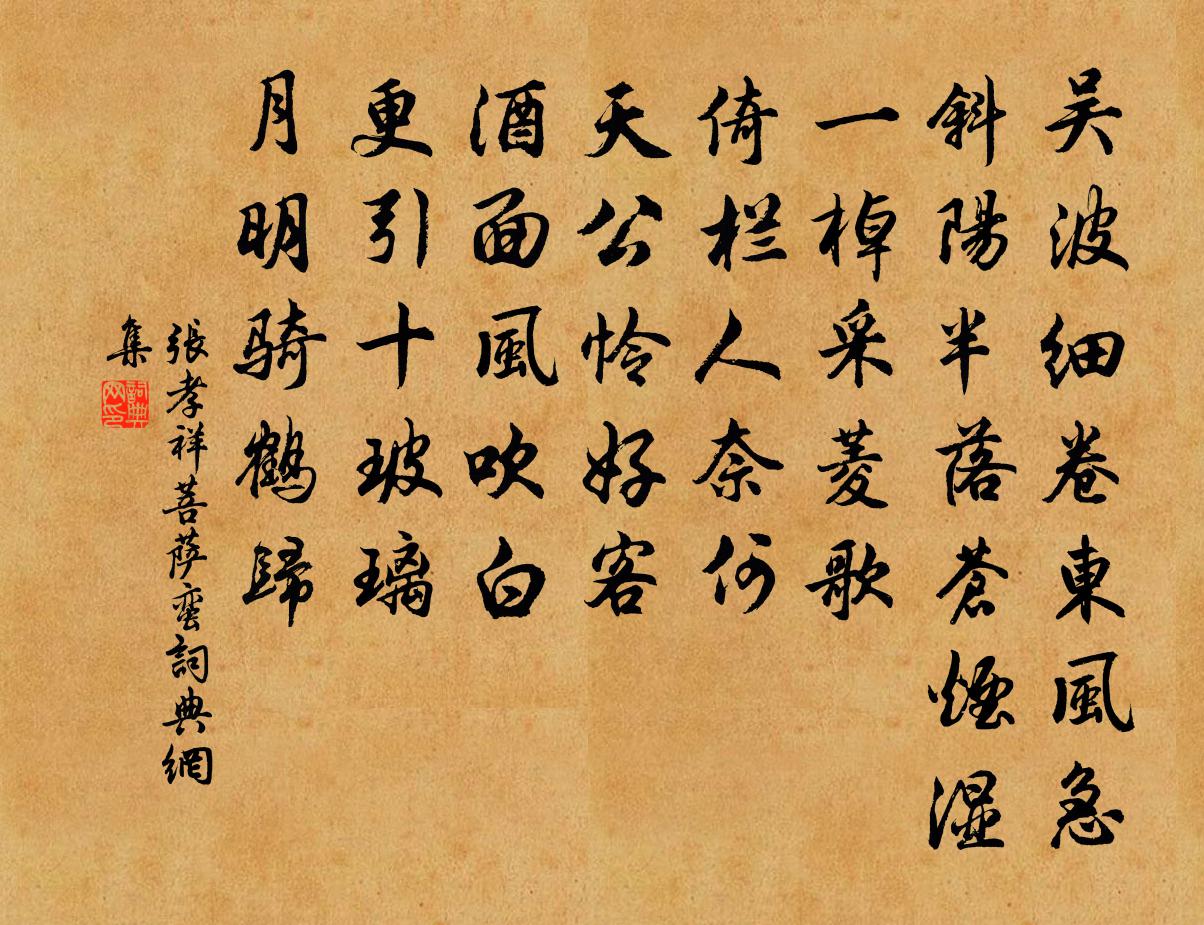 吴波细卷東風急
斜陽半落蒼煙湿
一棹采菱歌
倚栏人奈何
天公怜好客
酒面風吹白
更引十玻璃
月明騎鶴歸
張孝祥菩萨蛮詞典網
集
詞典
网印